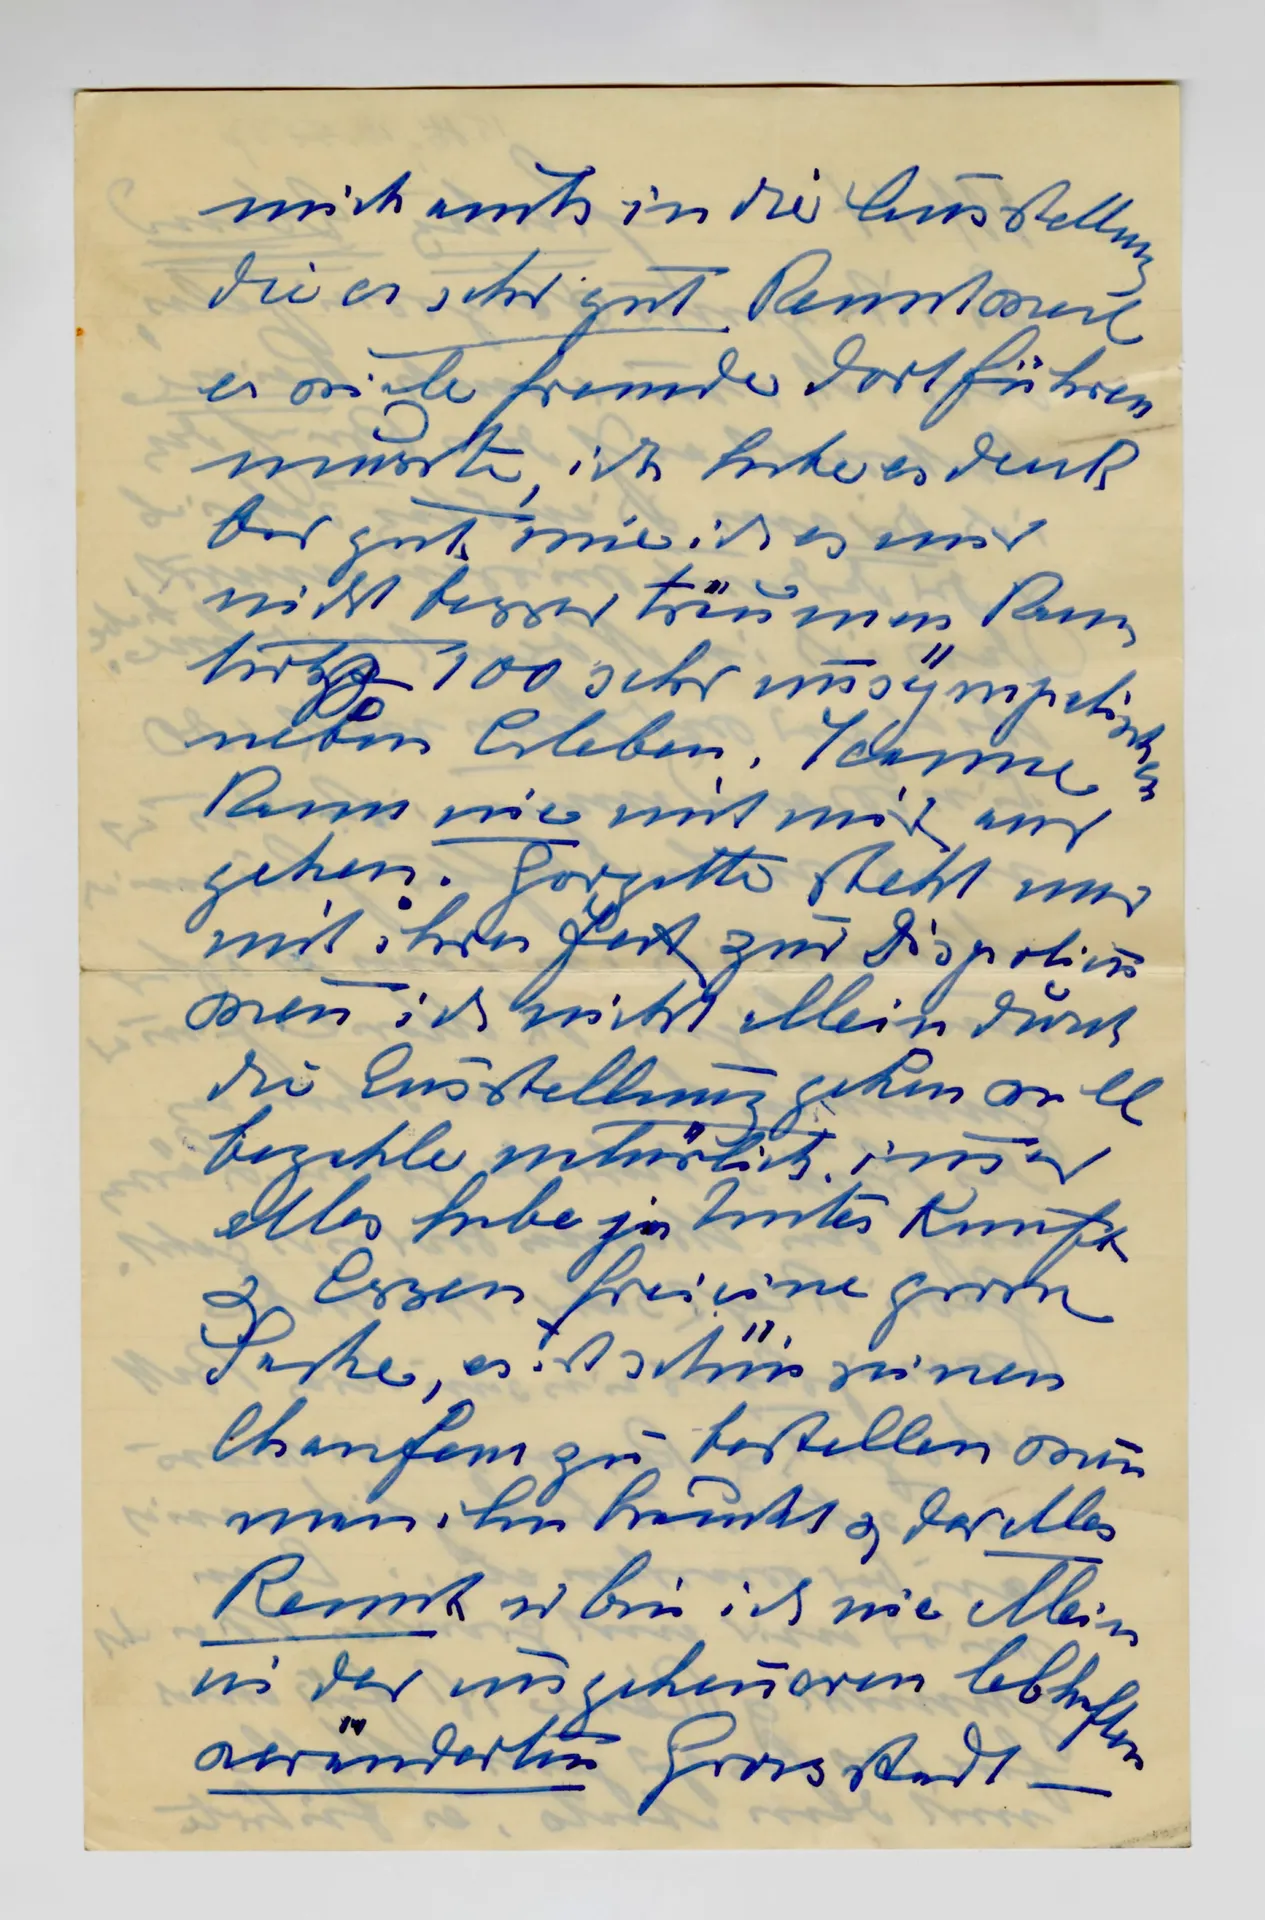 mich auch in die Ausstellung
die er sehr gut kennt weil
er viele Fremde dort führen
musste, ich habe es denk
bar gut wie ich es mir
nicht besser träumen kann
trotz 100 sehr unsÿmpatischen
neben Erleben. Yvonne
kann nie mit mir aus
gehen. Gorgette steht nur
mit ihrer Zeit zur Disposition
wen ich nicht allein durch
die Ausstellung gehen will
bezahle natürlich immer
Alles habe ja Unterkunft
& Essen frei eine grosse
Sache, es ist schön einen
Chauffeur zu bestellen wenn
man ihn braucht & der Alles
kennt so bin ich nie allein
in der ungeheueren lebhaften
veränderten Grossstadt —